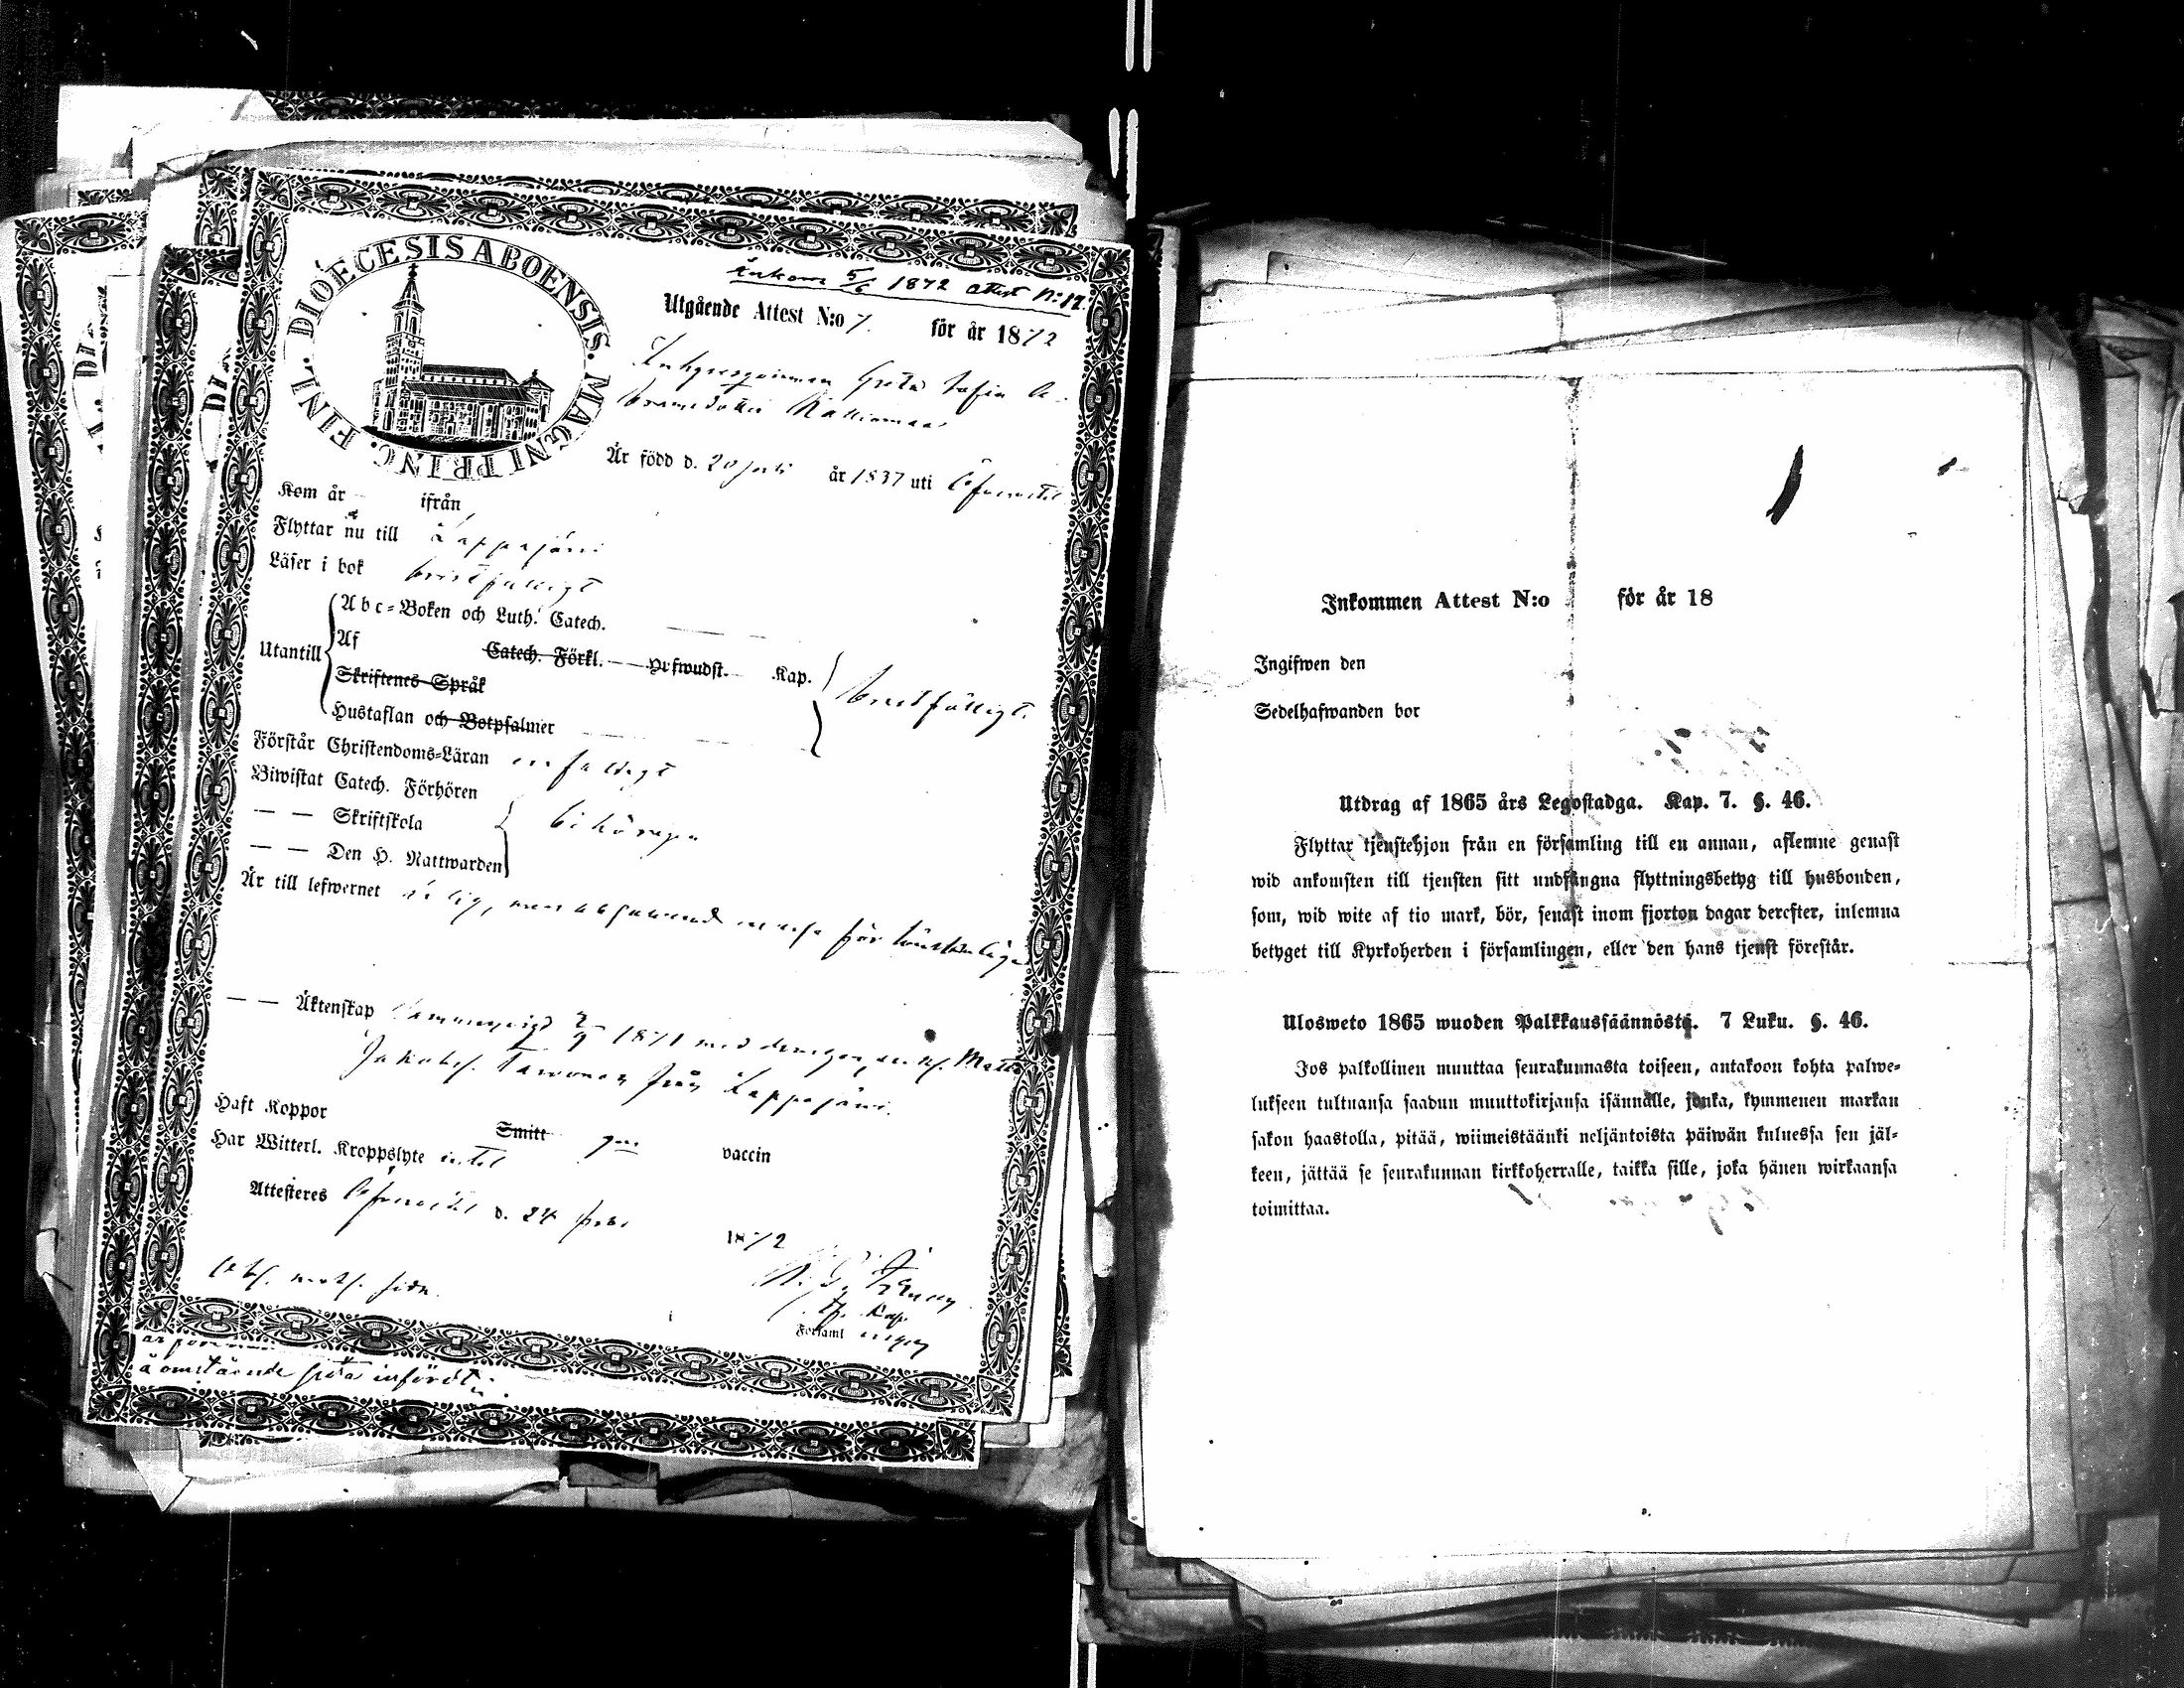 DIOECESIS ABOENSIS. MAGNI PRINC. FINL.
Ankom 5/6 1872 attest N:12.
Utgående Attest N:o 7. för år 1872
Inhysesqvinnan Greta Sofia A-
bramsdotter Kalliomaa
Är född d. 20 Juli år 1837 uti
Kom år – ifrån
Flyttar nu till Lappajärvi
Läser i bok bristfälligt
Utantill
Abc-Boken och Luth. Catech.
Af Catech. Förkl. Hufwudst. Kap.
Skriftenes Språk
Hustaflan och Botpsalmer
bristfälligt.
Förstår Christendoms-Läran enfaldigt
Biwistat Catech. Förhören
— — Skriftskola
— — Den H. Nattwarden
behörigen
Är till lefwernet ärlig, men
— — Äktenskap Sammanvigd 1871 med drengen, Matts
Jakobss. från Lappajärvi.
Haft Koppor Smitt vaccin
Har Witterl. Kroppslyte intet
Attesteres d. 24 1872
Obs. mots. sidn.
Församl
å omstående sida infördt
Inkommen Attest N:o för år 18
Ingifwen den
Sedelhafwanden bor
Utdrag af 1865 års Legostadga. Kap. 7. §. 46.
Flyttar tjenstehjon från en församling till en annan, aflemne genast
wid ankomsten till tjensten sitt undfångna flyttningsbetyg till husbonden,
som, wid wite af tio mark, bör, senast inom fjorton dagar derefter, inlemna
betyget till Kyrkoherden i församlingen, eller den hans tjenst förestår.
Ulosweto 1865 wuoden Palkkaussäännöstä. 7 Luku. §. 46.
Jos palkollinen muuttaa seurakunnasta toiseen, antakoon kohta palwe-
lukseen tultuansa saadun muuttokirjansa isännälle, jonka, kymmenen markan
sakon haastolla, pitää, wiimeistäänki neljäntoista päiwän kuluessa sen jäl-
keen, jättää se seurakunnan kirkkoherralle, taikka sille, joka hänen wirkaansa
toimittaa.